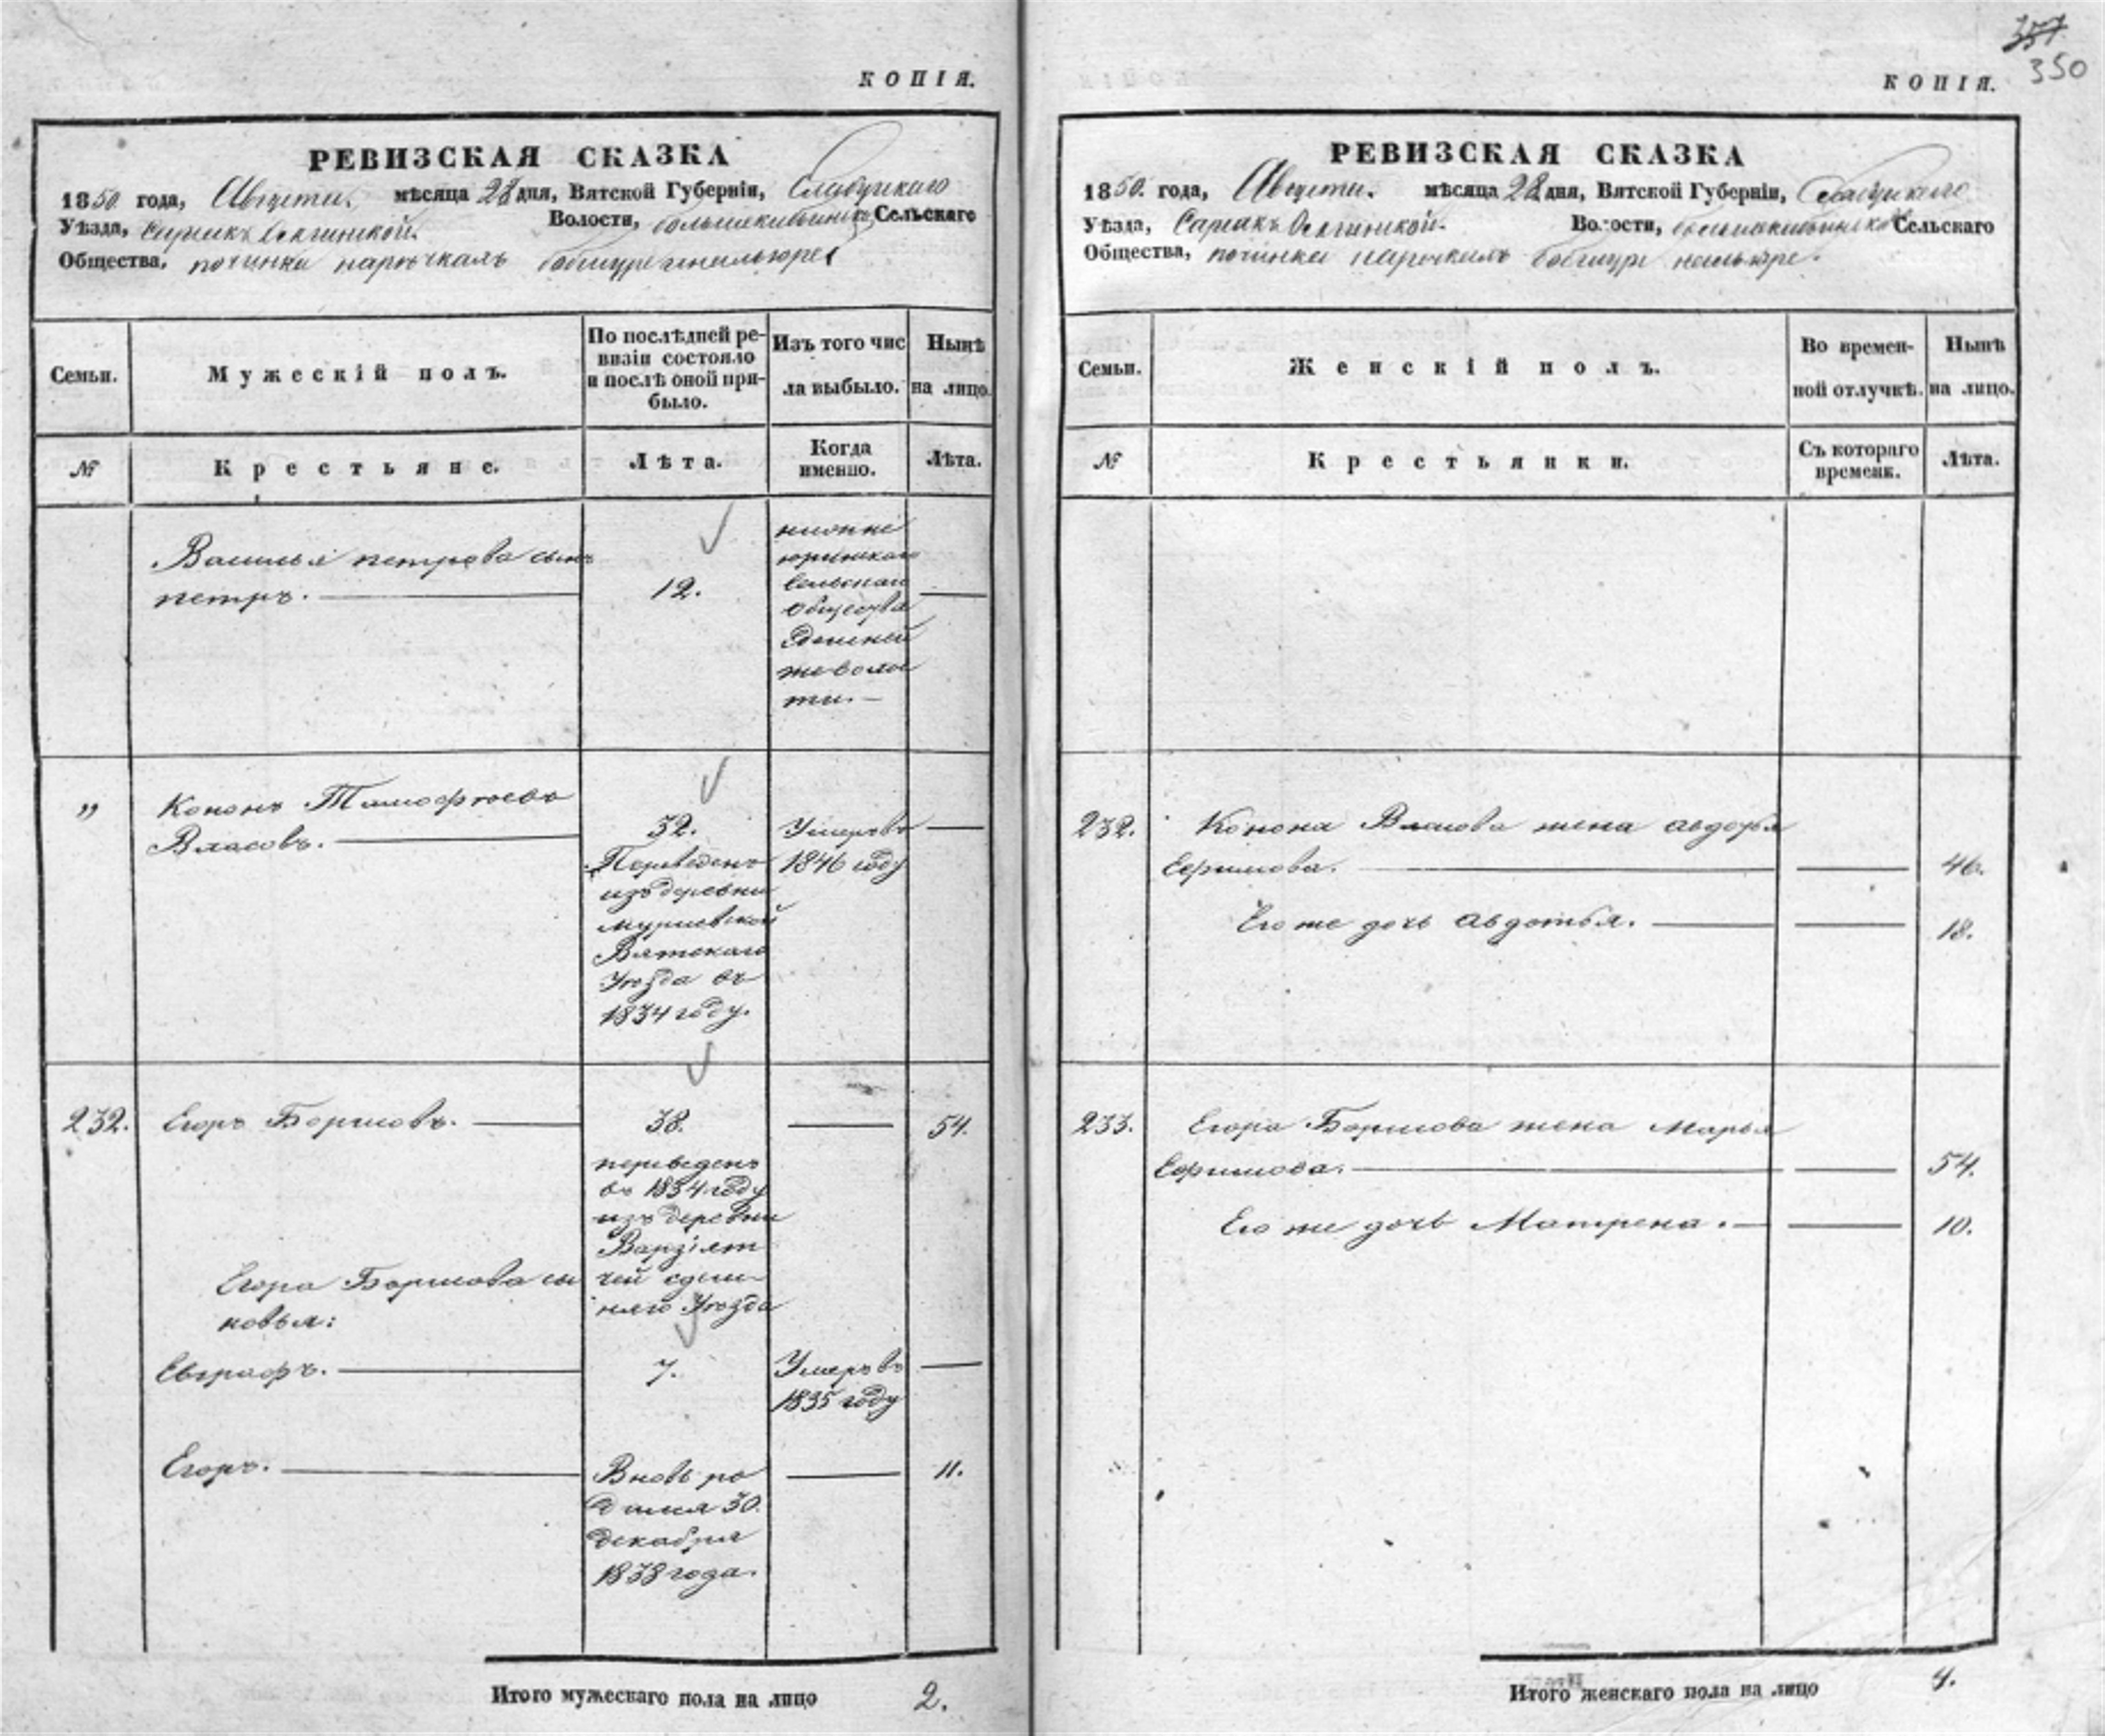 КОПІЯ.
РЕВИЗСКАЯ СКАЗКА
1850 года, Августа. мѣсяца 28 дня, Вятской Губерніи, Елабужскаго
Уѣзда, Волости, Сельскаго
Общества, починка
Семьи.
Мужескій полъ.
По послѣдней ре-
визіи состояло
и послѣ оной при-
было.
Изъ того чис
ла выбыло.
Нынѣ
на лицо.
№
Крестьяне.
Лѣта.
Когда
именно.
Лѣта.
Василья петрова сынъ
петръ.
12.
сельскаго
общества
здешней
же волос
ти.
„
Кононъ Тимофѣевъ
Власовъ.
32.
Переведенъ
изъ деревни
Вятскаго
Уѣзда въ
1834 году.
Умеръ въ
1846 году
232.
Егоръ Борисовъ.
38.
переведенъ
въ 1834 году
изъ деревни
Варзіят
чей здеш-
няго Уѣзда
54.
Егора Борисова сы
новья:
Евграфъ.
7.
Умеръ въ
1835 году
Егоръ.
Вновь ро
дился 30.
декабря
1838 года.
11.
Итого мужескаго пола на лицо 2.
357
350
КОПІЯ.
РЕВИЗСКАЯ СКАЗКА
1850. года, Августа. мѣсяца 28 дня, Вятской Губерніи, Елабужскаго
Уѣзда, Волости, Сельскаго
Общества, починка
Семьи.
Женскій полъ.
Во времен-
ной отлучкѣ.
Нынѣ
на лицо.
№
Крестьянки.
Съ котораго
времени.
Лѣта.
232.
Конона Власова жена авдотья
Ефимова.
46.
Его же дочь авдотья.
18.
233.
Егора Борисова жена Марья
Ефимова.
54.
Его же дочь Матрена.
10.
Итого женскаго пола на лицо 4.